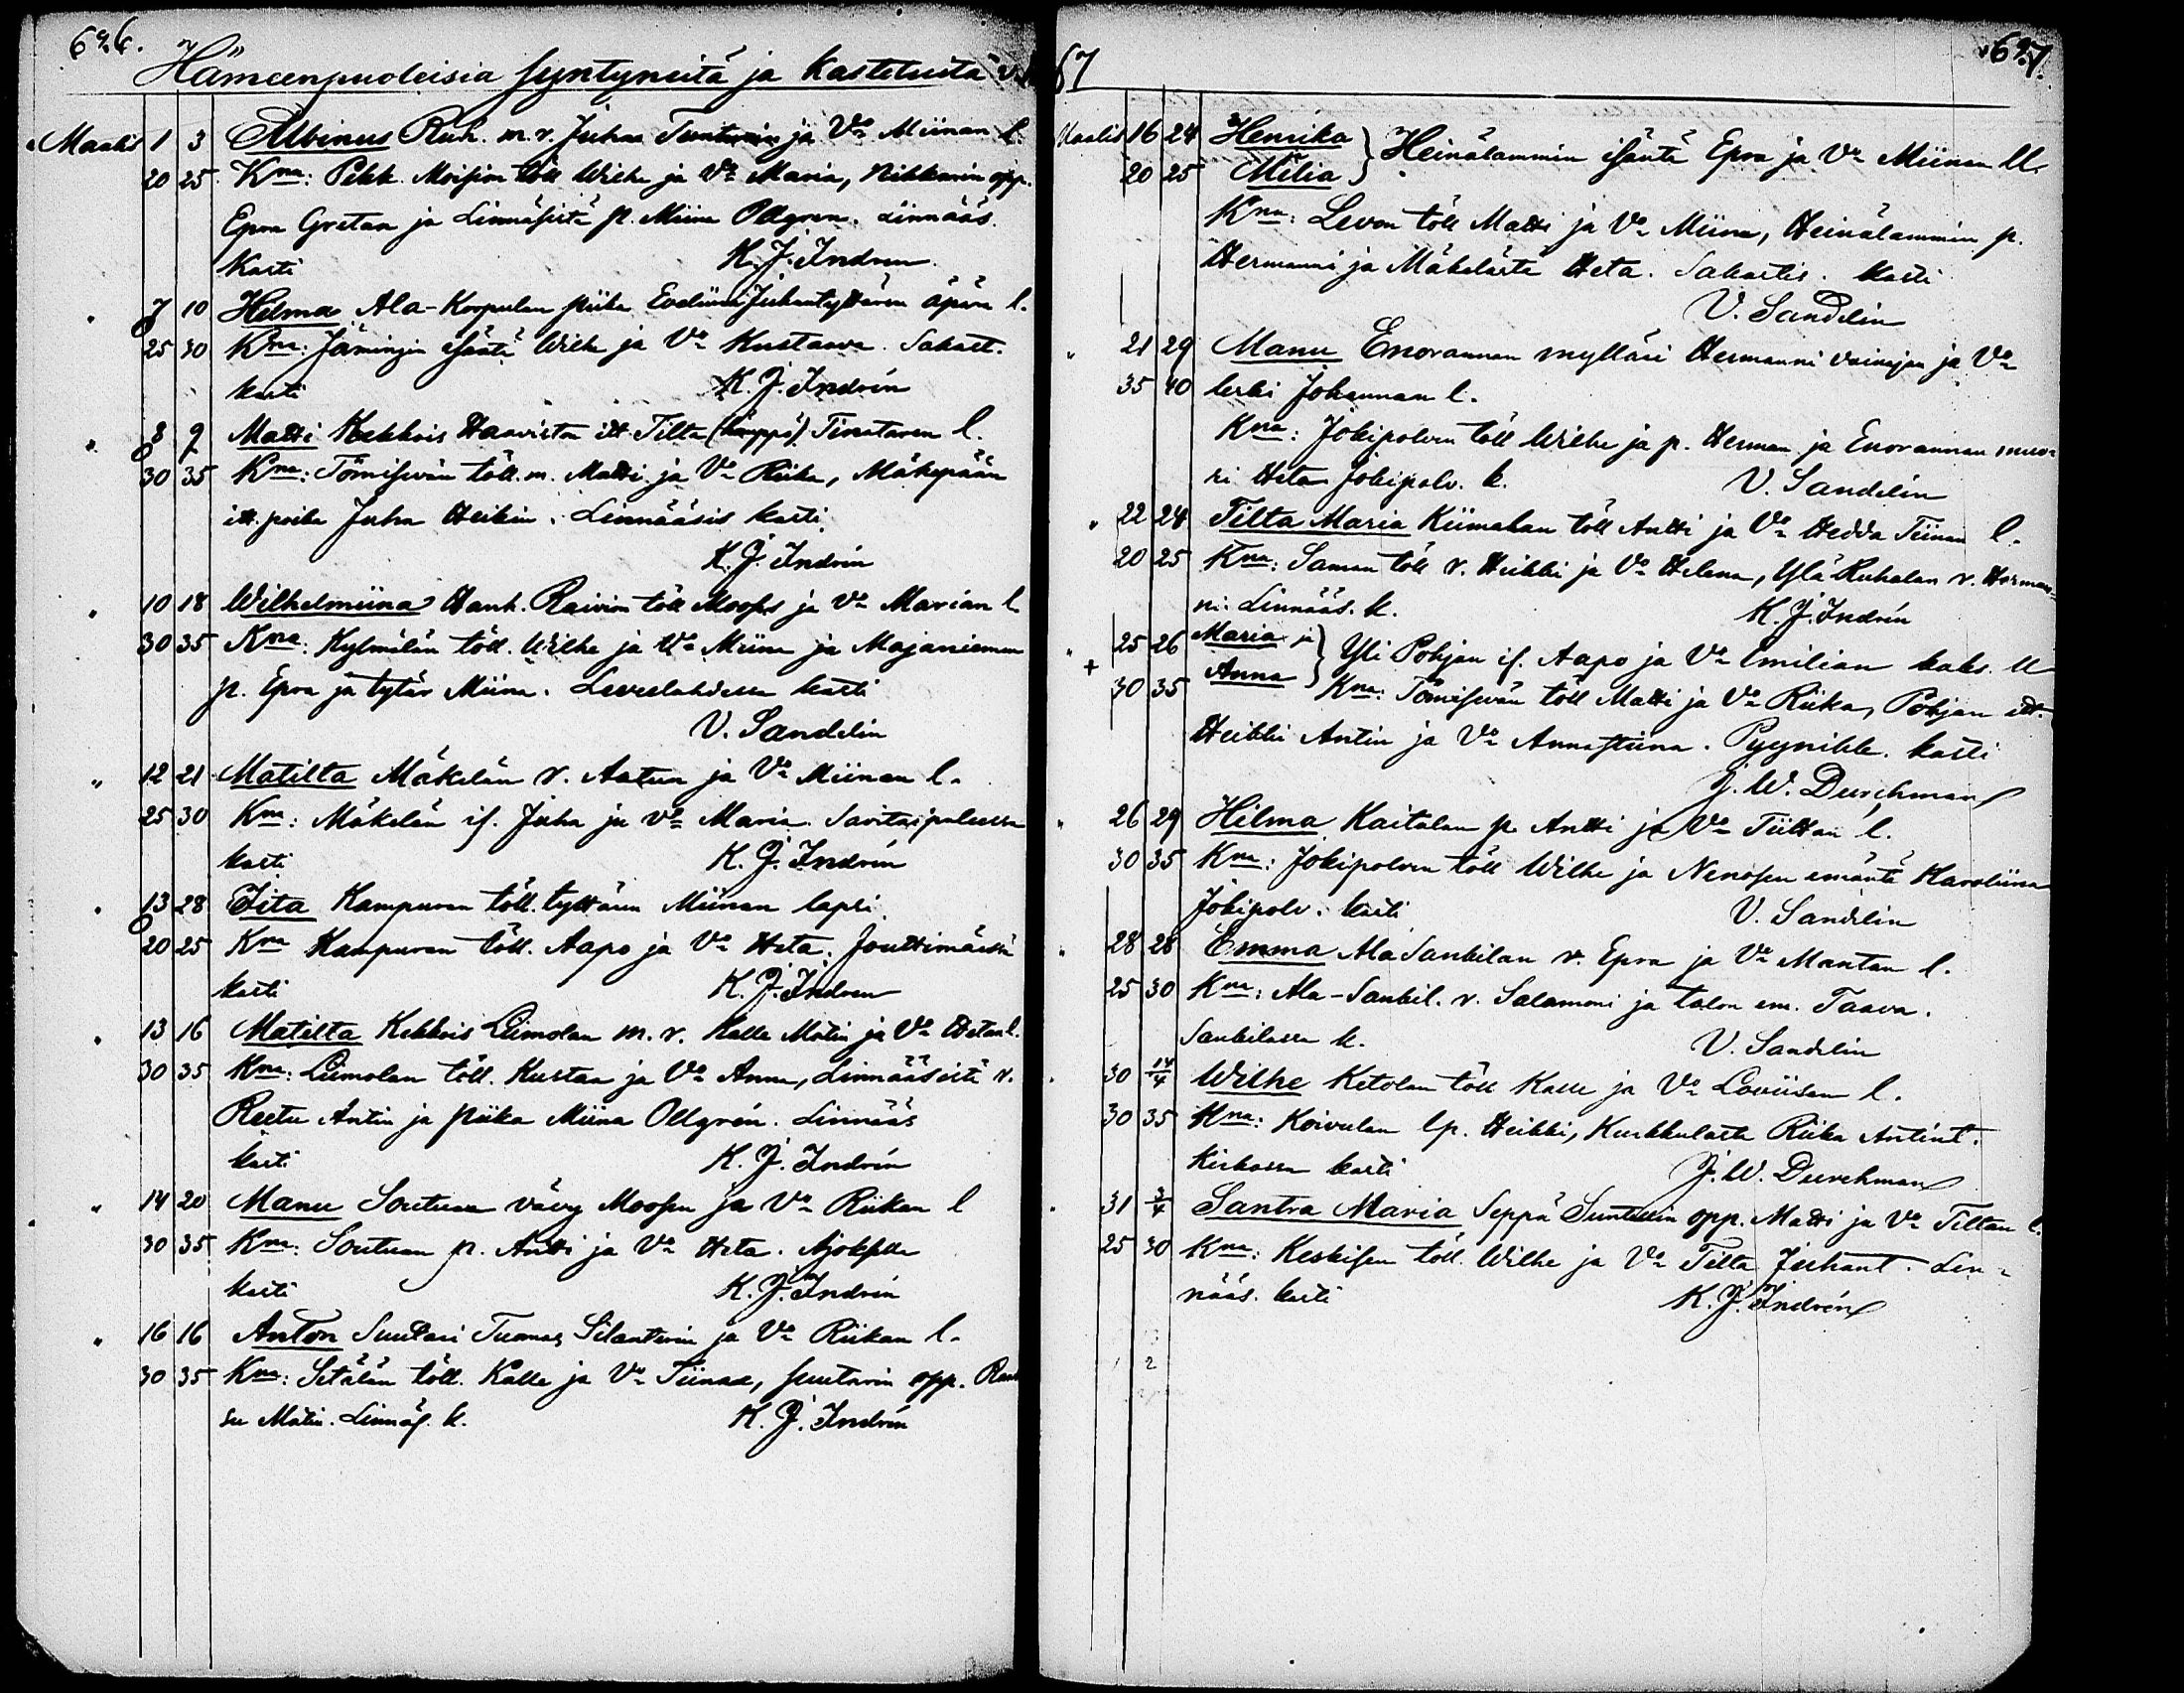 626.
Hämeenpuoleisia syntyneitä ja kastetuita v.
Maalis 1 3 Albinus Ruh. m. r. Juhan ja Vo Miinan l.
20 25 Kna: Pekk. Moision töll Wilhe ja Vo Maria, Nikkarin opp.
Epra Gretan ja Linnäsistä p. Miina Ollgren. Linnääs.
Kasti K. J. Indren
" 7 10 Helma Ala-Korpulan piika Eveliina Juhantyttären äpärä l.
25 30 Kna: Jäningin isäntä Wilhe ja Vo Kustaava. Sakast.
kasti K. J. Indrén
" 8 9 Matti Kekkois Haavista itt. Tilta Tinataren l.
30 35 Kna: Tömisevän töll. m. Matti ja Vo Riika, Mäkepään
itt. poika Juha Heikin. Linnääsis kasti
K. J. Indrén
" 10 18 Wilhelmiina Hank. Raivion töll Moses ja Vo Marian l.
30 35 Kna: Kylmälän töll. Wilhe ja Vo Miina ja Majaniemen
p. Epra ja tytär Miina. Leveelahdessa kasti
V. Sandelin
" 12 21 Matilta Mäkelän r. Aatun ja Vo Miinan l.
25 30 Kna: Mäkelän is. Juha ja Vo Maria. Savitaipaleessa
kasti K. J. Indrén
" 13 28 Iita Kampuran töll. tyttären Miinan lapsi
20 25 Kna Kampuran töll. Aapo ja Vo Heta. Jouttimäessä
kasti K. J. Indren
" 13 16 Matilta Kekkois Liimolan m. r. Kalle Matin ja Vo Hetan l.
30 35 Kna: Liimolan töll. Kustaa ja Vo Anna, Linnääsistä r.
Reetu Antin ja piika Miina Ollgrén. Linnääs
kasti K. J. Indrén
" 14 20 Manu Soutuan vävy Moosen ja Vo Riikan l
30 35 Kna: Soutuan p. Antti ja Vo Heta.
kasti K. J. Indrén
" 16 16 Anton Suutari Tuomas Silanterin ja Vo Riikan l.
30 35 Kna: Setälän töll. Kalle ja Vo Tiinaa, suutarin opp.
su Matin. Linnäs. k. K. J. Indrén
67 627.
Maalis 16 24 Henrika
20 25 Milia } Heinälammin isäntä Epra ja Vo Miinan ll.
Kna: Levon töll Matti ja Vo Miina, Heinälammin p.
Hermanni ja Mäkelästä Heta. Sakastis. kasti
V. Sandelin
" 21 29 Manu Enorannan mylläri Hermanni vainajan ja Vo
35 40 lerki Johannan l.
Kna: Jokipolven töll Wilhe ja p. Herman ja Enorannan muo-
ri Heta Jokipolv. k. V. Sandelin
" 22 24 Tilta Maria Kiimahan töll Antti ja Vo Hedda Tiinan l.
20 25 Kna: Saman töll r. Heikki ja Vo Helena, Ylä Ruhalan r. Herman-
ni. Linnääs. k. K. J. Indrén
" + 25 26 Maria ja
30 35 Anna } Yli Pohjan is. Aapo ja Vo Emilian kaks. ll
Kna: Tömisevän töll Matti ja Vo Riika, Pohjan itt.
Heikki Antin ja Vo Annastiina. Pyynikk. kasti
J. W. Durchman
" 26 29 Hilma Kaitalan p. Antti ja Vo Tiittan l.
30 35 Kna: Jokipolven töll Wilhe ja Nenosen emäntä Karoliina
Jokipolv. kasti V. Sandelin
" 28 28 Emma Ala Sankilan r. Epra ja Vo Mantan l.
25 30 Kna: Ala-Sankil. r. Salamoni ja talon em. Taava.
Sankilassa k. V. Sandelin
" 30 14/4 Wilhe Ketolan töll Kalle ja Vo Loviisan l.
30 35 Kna: Koivulan lp. Heikki, Kurkkulasta Riika Antint.
Kirkossa kasti J. W. Durchman
" 31 3/4 Santra Maria Seppä Suntellin opp. Matti ja Vo Tiltan l.
25 30 Kna: Keskisen töll. Wilhe ja Vo Tilta Juhant. Lin-
nääs. kasti K. J. Indrén